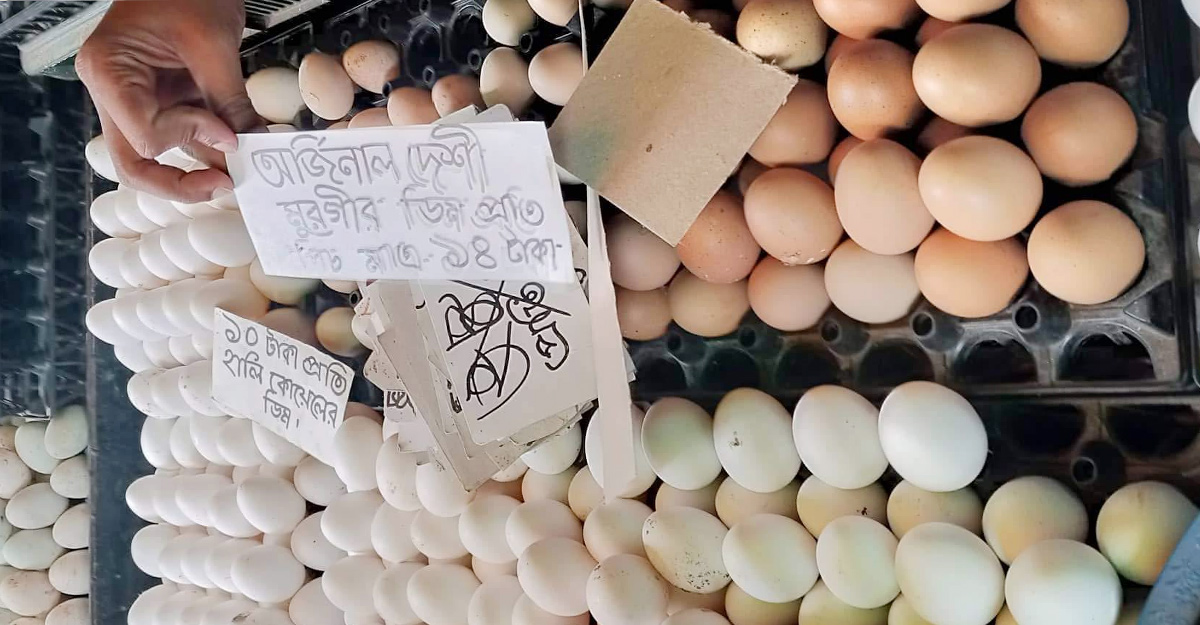 অর্জিনাল দেশী
মুরগীর ডিম প্রতি
পিচ মাত্র ১৪ টাকা
১০ টাকা প্রতি
হালি কোয়েলের
ডিম।